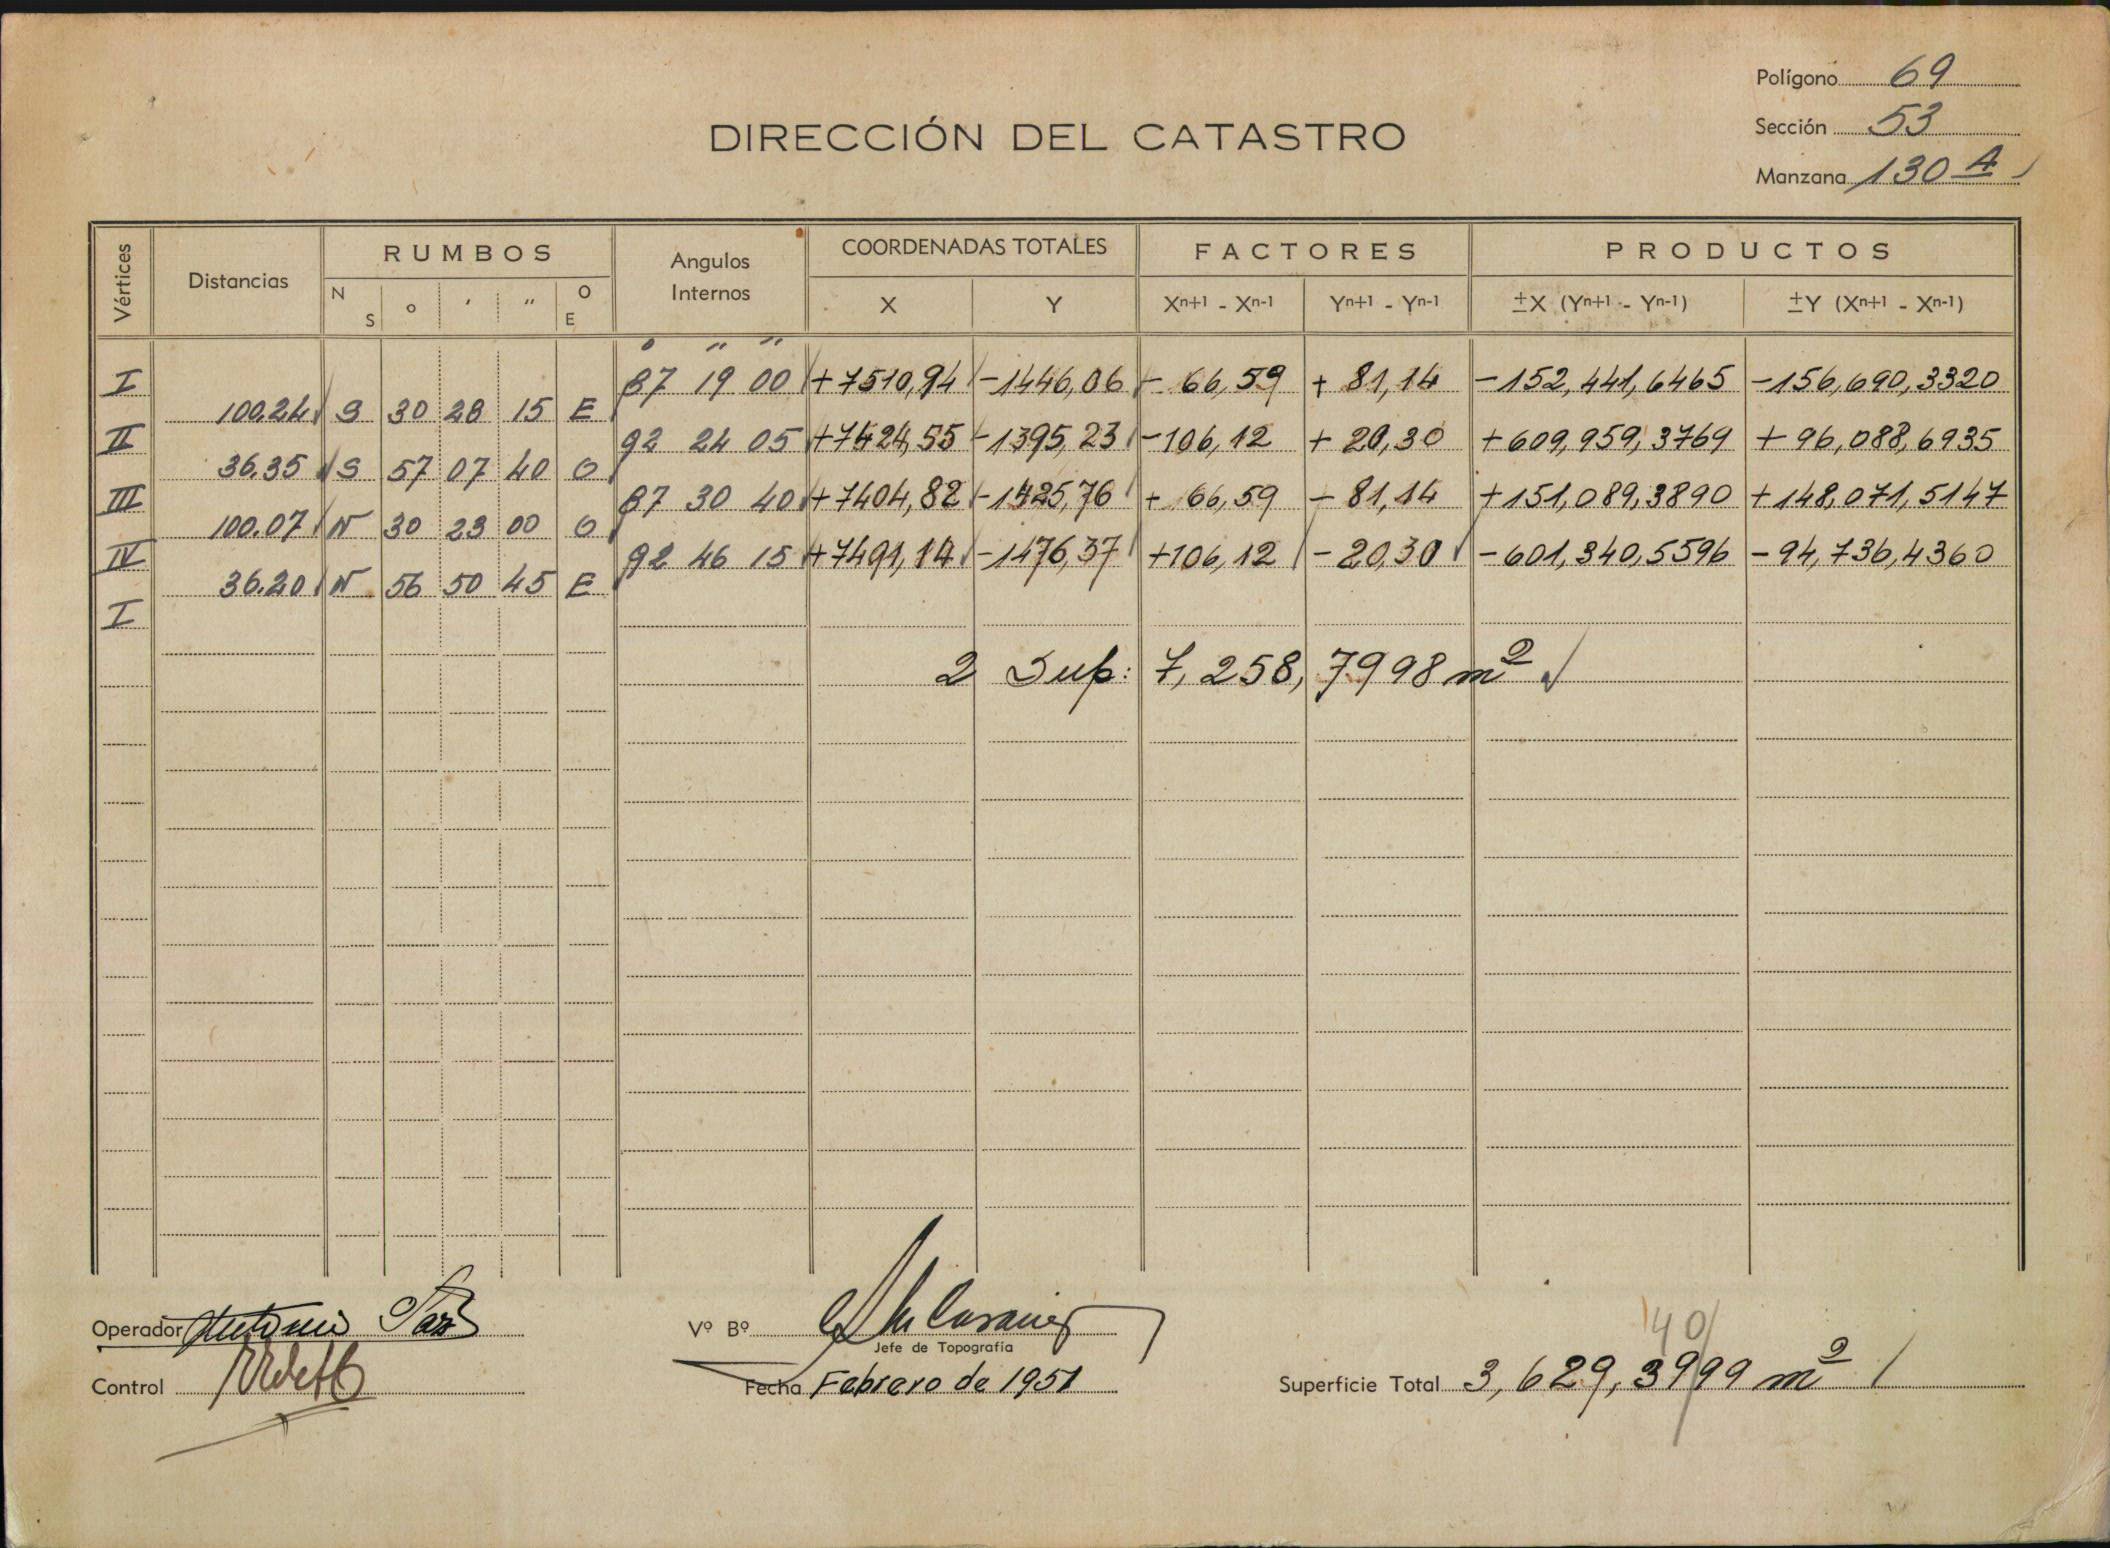 Polígono 69
Sección 53
Manzana 130 A
DIRECCIÓN DEL CATASTRO
Vértices Distancias RUMBOS Angulos Internos COORDENADAS TOTALES FACTORES PRODUCTOS
N S ° ' " O E X Y Xn+1 - Xn-1 Yn+1 - Yn-1 ±X (Yn+1 - Yn-1) ±Y (Xn+1 - Xn-1)
° " "
I 87 19 00 +7510,94 -1446,06 - 66,59 + 81,14 -152,441,6465 -156,690,3320
100.24 S 30 28 15 E
II 92 24 05 +7424,55 -1395,23 -106,12 + 20,30 +609,959,3769 +96,088,6935
36.35 S 57 07 40 O
III 87 30 40 +7404,82 -1425,76 + 66,59 - 81,14 +151,089,3890 +148,071,5147
100.07 N 30 23 00 O
IV 92 46 15 +7491,14 -1476,37 +106,12 - 20,30 -601,340,5596 -94,736,4360
36.20 N 56 50 45 E
I
2 Sup: 7,258,7998 m²
Operador Antonio Paz
Vº Bº
Jefe de Topografía
Control
Fecha Febrero de 1951
40
Superficie Total 3,629,3999 m²